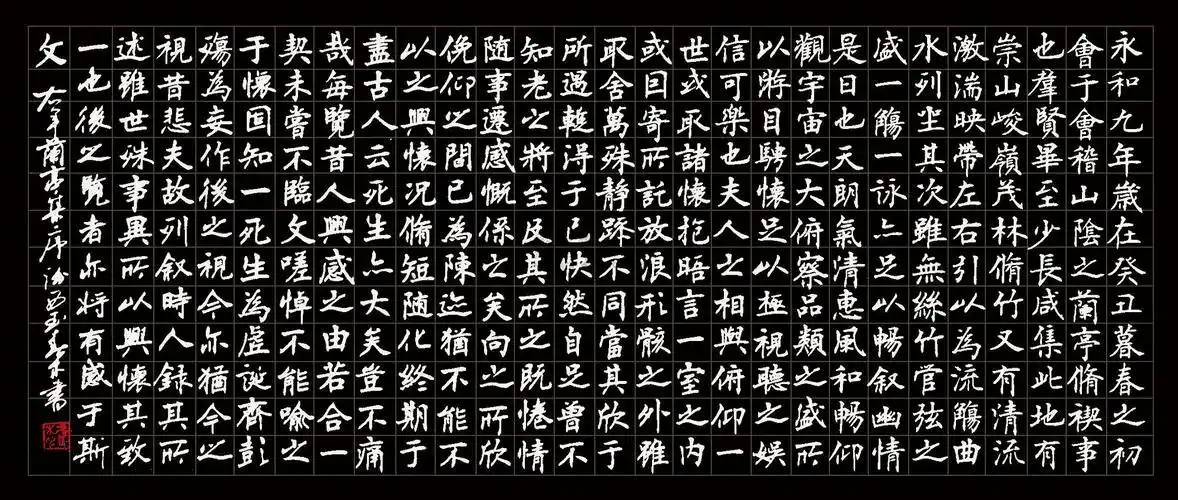 永和九年歲在癸丑暮春之初
會于會稽山陰之蘭亭脩禊事
也羣賢畢至少長咸集此地有
崇山峻嶺茂林脩竹又有清流
激湍映帶左右引以為流觴曲
水列坐其次雖無絲竹管弦之
盛一觴一詠亦足以暢叙幽情
是日也天朗氣清惠風和暢仰
觀宇宙之大俯察品類之盛所
以將目騁懷足以極視聽之娱
信可樂也夫人之相與俯仰一
世或取諸懷抱晤言一室之內
或因寄所託放浪形骸之外雖
取舍萬殊靜躁不同當其欣于
所遇蹔得于己快然自足曾不
知老之將至及其所之既惓情
随事遷感慨係之矣向之所欣
俛仰之間已為陳迹猶不能不
以之興懷況脩短随化終期于
盡古人云死生亦大矣豈不痛
哉每覽昔人興感之由若合一
契未嘗不臨文嗟悼不能喻之
于懷固知一死生為虛誕齊彭
殤為妄作後之視今亦猶今之
視昔悲夫故列叙時人録其所
述雖世殊事異所以興懷其致
一也後之覽者亦将有感于斯
文 右軍蘭亭集序 書